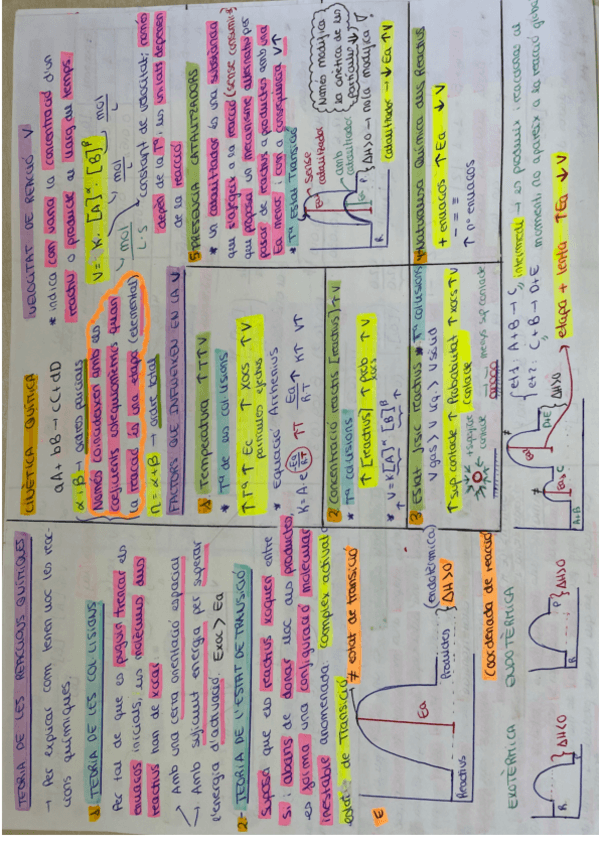 TEORIA DE LES REACCIONS QUÍMIQUES
→ Per explicar com tenen lloc les reac-
cions químiques.
1. TEORIA DE LES COL·LISIONS
Per tal de que es puguin trencar els
enllaços inicials, les molècules dels
reactius han de xocar
Amb una certa orientació espacial
Amb suficient energia per superar
l'energia d'activació. Exoc > Ea
2- TEORIA DE L'ESTAT DE TRANSICIÓ
Suposa que els reactius xoquen entre
si, abans de donar lloc als productes,
es forma una configuració molecular
inestable anomenada: complex activat o
estat de Transició
E
≠ estat de transició
Ea
Reactius
Productes
(endotèrmica)
} ΔH>0
Coordenada de reacció
EXOTÈRMICA ENDOTÈRMICA
R
P
} ΔH<0
R
P
} ΔH>0
CINÈTICA QUÍMICA
aA + bB → cC + dD
α i B → ordres parcials
Només coincideixen amb els
coeficients estequiomètrics quan
la reacció és una etapa (elemental)
n = α + B → ordre total
VELOCITAT DE REACCIÓ V
* indica com varia la concentració d'un
reactiu o producte al llarg del temps.
V = K · [A]^α [B]^β
mol
L
mol
L
mol
L·S
constant de velocitat; només
depèn de la Tª, les unitats depenen
de la reacció
FACTORS QUE INFLUEIXEN EN LA V
1 Temperatura ↑T↑V
* Tª de les col·lisions
↑Tª ↑ Ec ↑ xocs ↑V
partícules efectius
* equació Arrhenius
K = A·e^(-Ea/RT) ↑T Ea/RT ↑ K↑ V↑
2 Concentració reactius [reactius]↑V
* Tª col·lisions
↑[reactius] ↑ prob. ↑V
xocs
* V = K[A]^α [B]^β
3 Estat físic reactius * Tª col·lisions
V gas > V líq. > V sòlid
↑ Sup. contacte ↑ Probabilitat ↑ xocs ↑V
contacte
4 Naturalesa Química dels Reactius
+ enllaços ↑ Ea ↓ V
- = ≡
↑ nº enllaços
5 PRESÈNCIA CATALITZADORS
* un catalitzador és una substància
que s'afegeix a la reacció (sense consumir)
que proposa un mecanisme alternatiu per
passar de reactius a productes amb una
Ea menor, i com a conseqüència V↑
* Tª Estat Transició
sense
catalitzador
amb
catalitzador
R
P
} ΔH>0 → no la modifica
Només modifica
la cinètica de les
catalitzador → ↓ Ea ↑V
et1: A+B → C
et2: C+B → D+E
intermedi → es produix
moment i no apareix a la reacció global
etapa + lenta ↑Ea ↓V
A+B
C
D+E
} ΔH>0